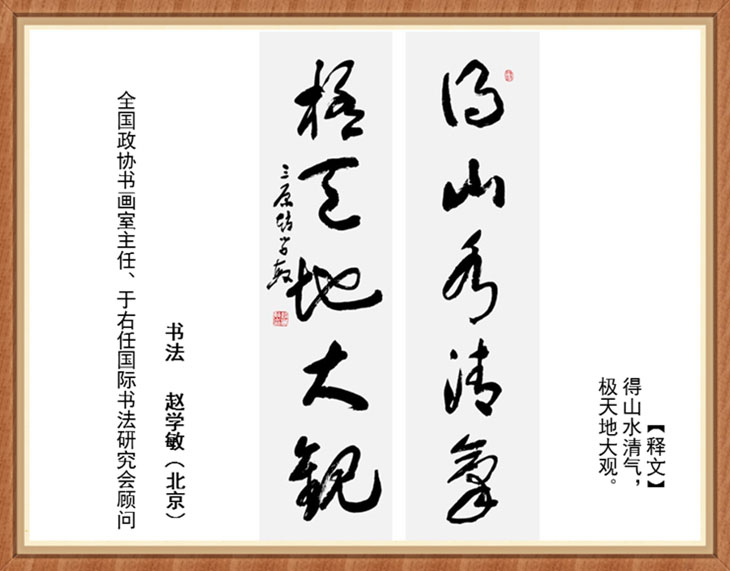 【释文】
得山水清气，
极天地大观。
得山水清氣
極天地大觀
三原趙学敏
书法 赵学敏（北京）
全国政协书画室主任、于右任国际书法研究会顾问